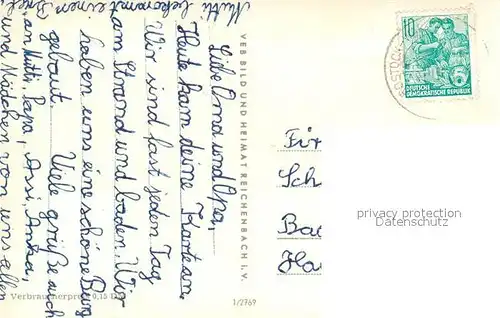 Liebe Oma und Opa,
Heute kam deine Karte an.
Wir sind fast jeden Tag
am Strand und baden. Wir
haben uns eine schöne Burg
gebaut. Viele grüße auch
an Mutti, Papa, Assi, Anka,
und Mädchen von uns allen
Mutti bekommt einen Brief.
VEB BILD UND HEIMAT REICHENBACH i. V.
Verbraucherpreis 0,15 DM
1/2769
10
DEUTSCHE
DEMOKRATISCHE REPUBLIK
5
Sch
Bad
Ha
privacy protection
Datenschutz